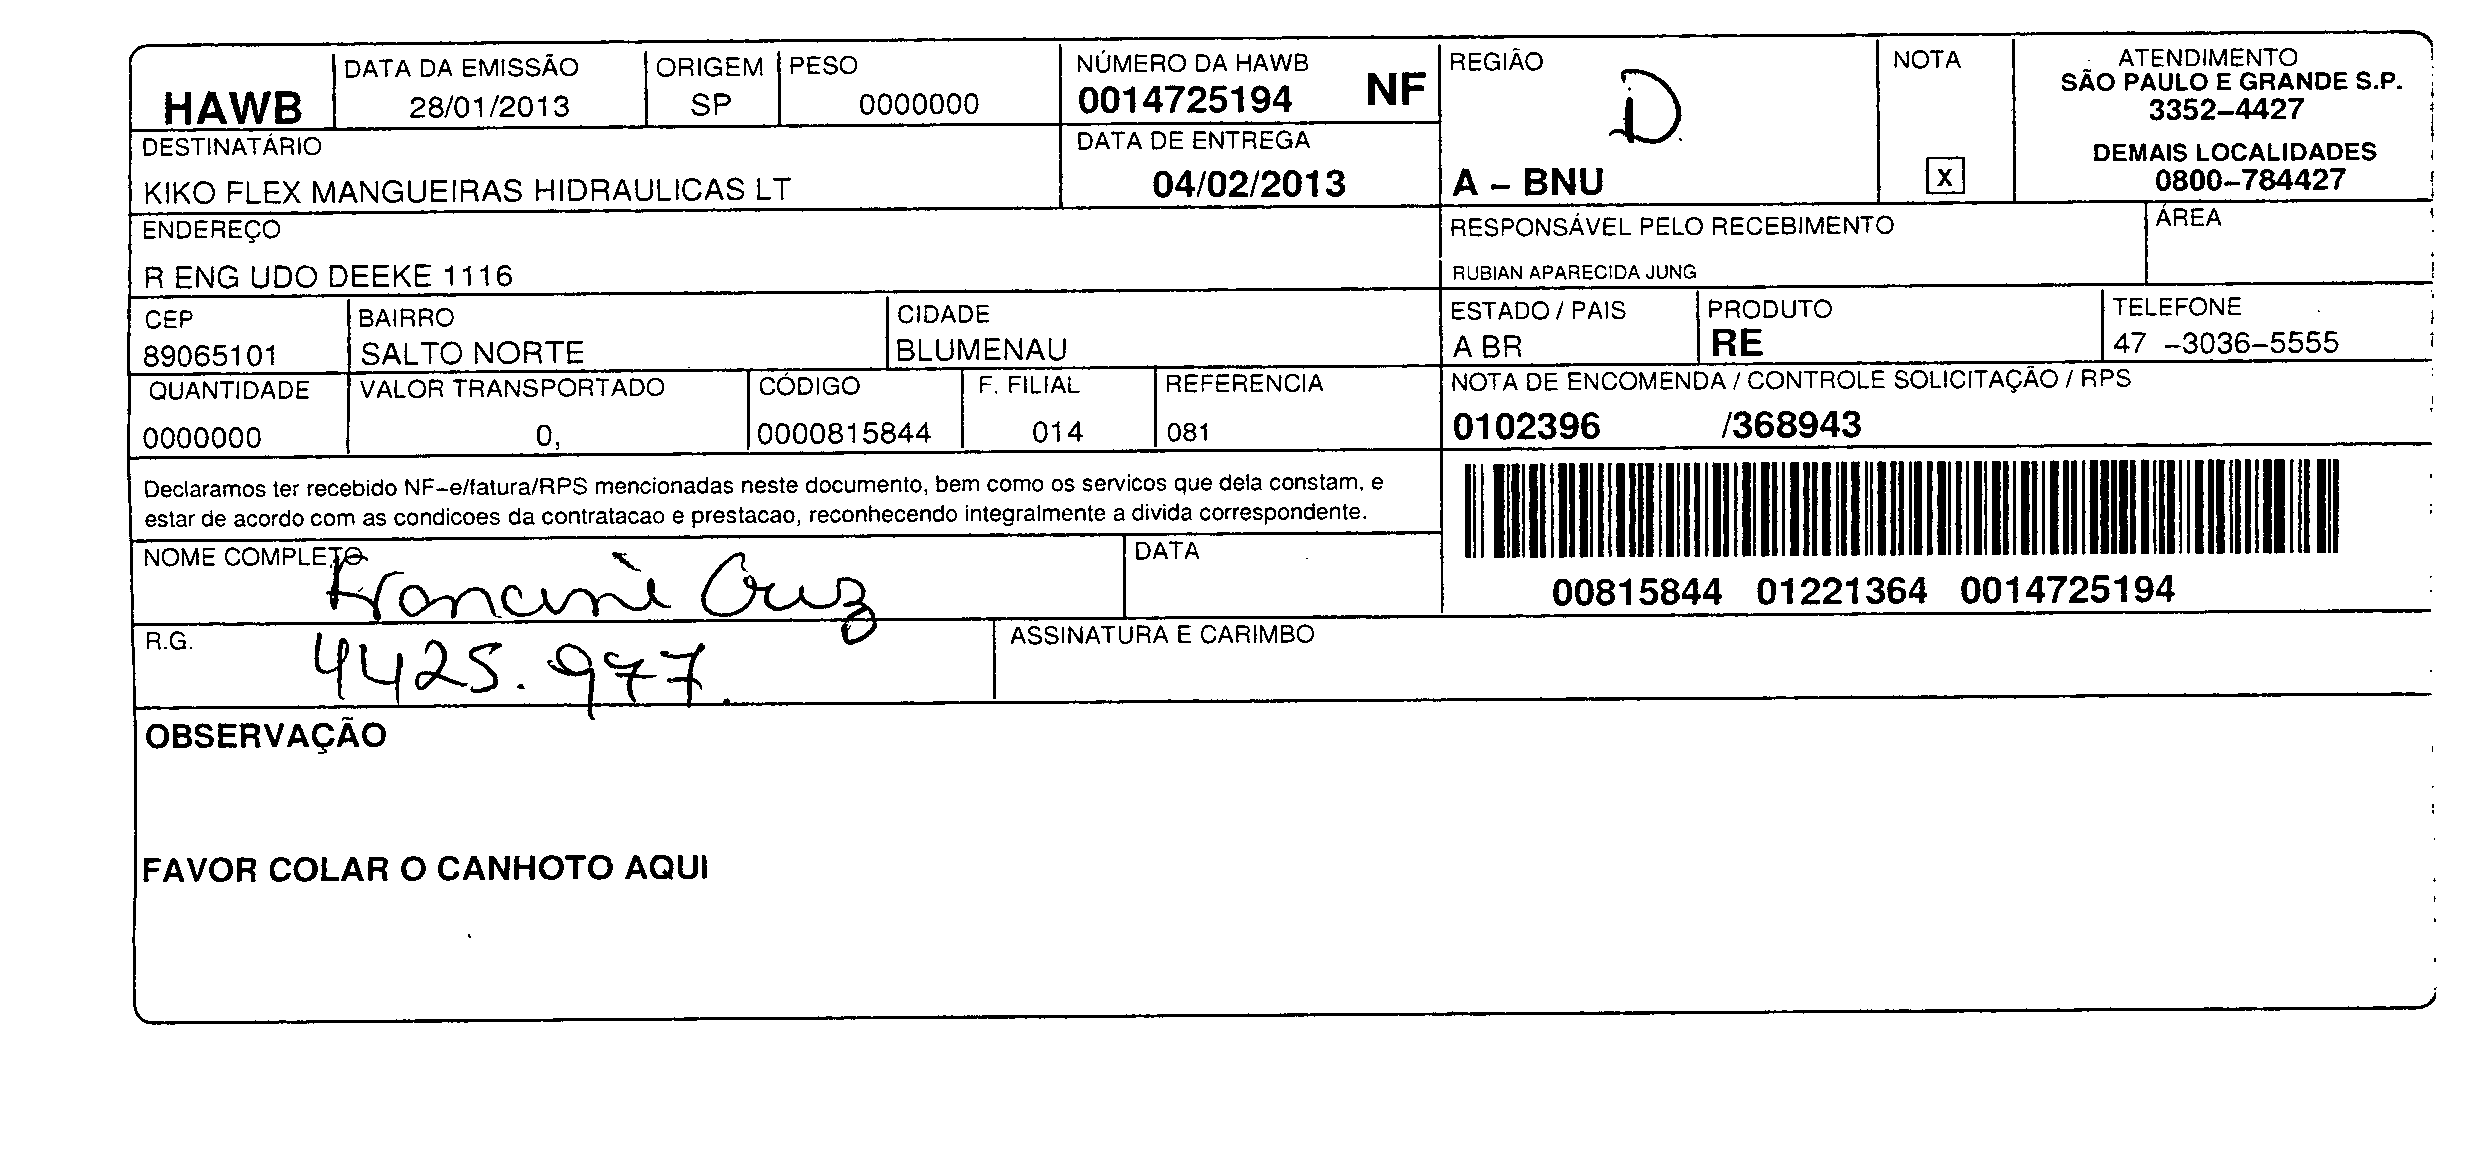 HAWB
DATA DA EMISSÃO
28/01/2013
ORIGEM
SP
PESO
0000000
NÚMERO DA HAWB
0014725194 NF
DATA DE ENTREGA
04/02/2013
REGIÃO
D
A – BNU
NOTA
X
ATENDIMENTO
SÃO PAULO E GRANDE S.P.
3352–4427
DEMAIS LOCALIDADES
0800–784427
DESTINATÁRIO
KIKO FLEX MANGUEIRAS HIDRAULICAS LT
ENDEREÇO
R ENG UDO DEEKE 1116
RESPONSÁVEL PELO RECEBIMENTO
RUBIAN APARECIDA JUNG
ÁREA
CEP
89065101
BAIRRO
SALTO NORTE
CIDADE
BLUMENAU
ESTADO / PAIS
A BR
PRODUTO
RE
TELEFONE
47 –3036–5555
QUANTIDADE
0000000
VALOR TRANSPORTADO
0,
CÓDIGO
0000815844
F. FILIAL
014
REFERENCIA
081
NOTA DE ENCOMENDA / CONTROLE SOLICITAÇÃO / RPS
0102396 /368943
Declaramos ter recebido NF–e/fatura/RPS mencionadas neste documento, bem como os servicos que dela constam, e
estar de acordo com as condicoes da contratacao e prestacao, reconhecendo integralmente a divida correspondente.
00815844 01221364 0014725194
NOME COMPLETO
Francine Cruz
DATA
R.G.
4425.977.
ASSINATURA E CARIMBO
OBSERVAÇÃO
FAVOR COLAR O CANHOTO AQUI